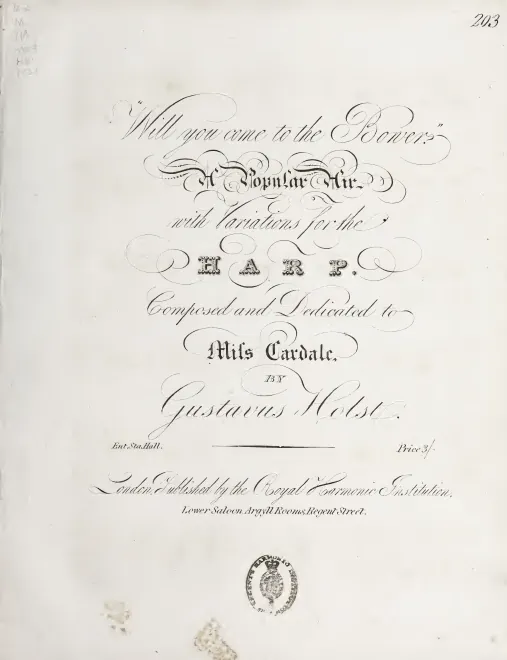 203
"Will you come to the Bower."
A Popular Air.
with Variations for the
HARP.
Composed and Dedicated to
Miſs Cardale.
BY
Gustavus Holst.
Ent. Sta. Hall.
Price 3/-
London, Published by the Royal Harmonic Institution,
Lower Saloon, Argyll Rooms, Regent Street.